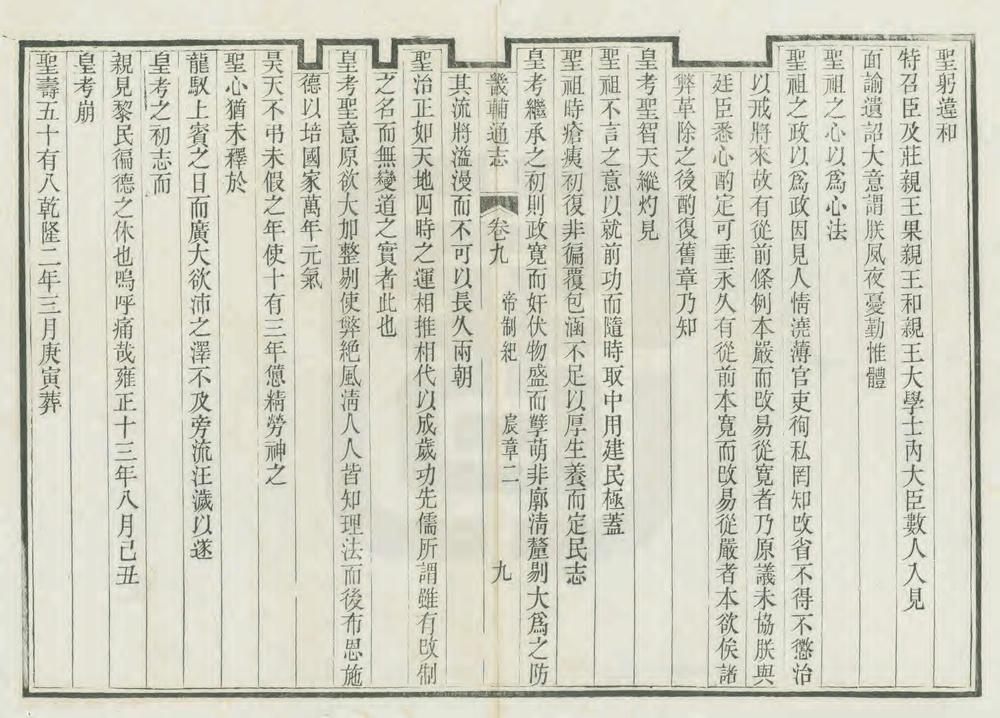 聖躬違和
特召臣及莊親王果親王和親王大學士內大臣數人入見
面諭遺詔大意謂朕夙夜憂勤惟體
聖祖之心以爲心法
聖祖之政以爲政因見人情澆薄官吏徇私罔知改省不得不懲治
以戒將來故有從前條例本嚴而改易從寬者乃原議未協朕與
廷臣悉心酌定可垂永久有從前本寬而改易從嚴者本欲俟諸
弊革除之後酌復舊章乃知
皇考聖智天縱灼見
聖祖不言之意以就前功而隨時取中用建民極蓋
聖祖時瘡痍初復非徧覆包涵不足以厚生養而定民志
皇考繼承之初則政寬而奸伏物盛而孽萌非廓清釐剔大爲之防
畿輔通志 卷九 帝制紀 宸章二 九
其流將溢漫而不可以長久兩朝
聖治正如天地四時之運相推相代以成歲功先儒所謂雖有改制
之名而無變道之實者此也
皇考聖意原欲大加整剔使弊絕風淸人人皆知理法而後布恩施
德以培國家萬年元氣
昊天不弔未假之年使十有三年憊精勞神之
聖心猶未釋於
龍馭上賓之日而廣大欲沛之澤不及旁流汪濊以遂
皇考之初志而
親見黎民徧德之休也嗚呼痛哉雍正十三年八月己丑
皇考崩
聖壽五十有八乾隆二年三月庚寅葬